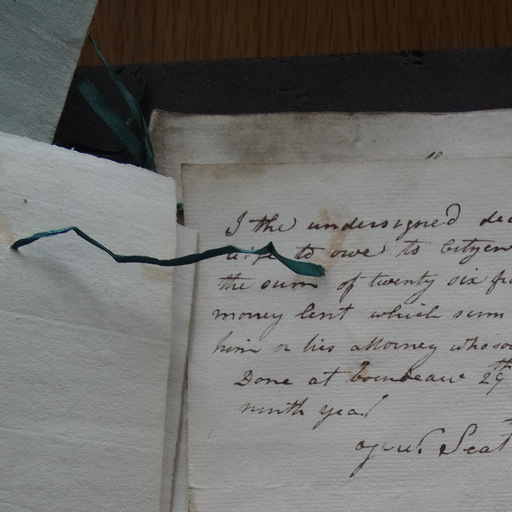 10
I the undersigned dec
to owe to Citizen
the sum of twenty six fr
money lent which sum
him or his attorney whoso
Done at 29th
ninth year
Seat